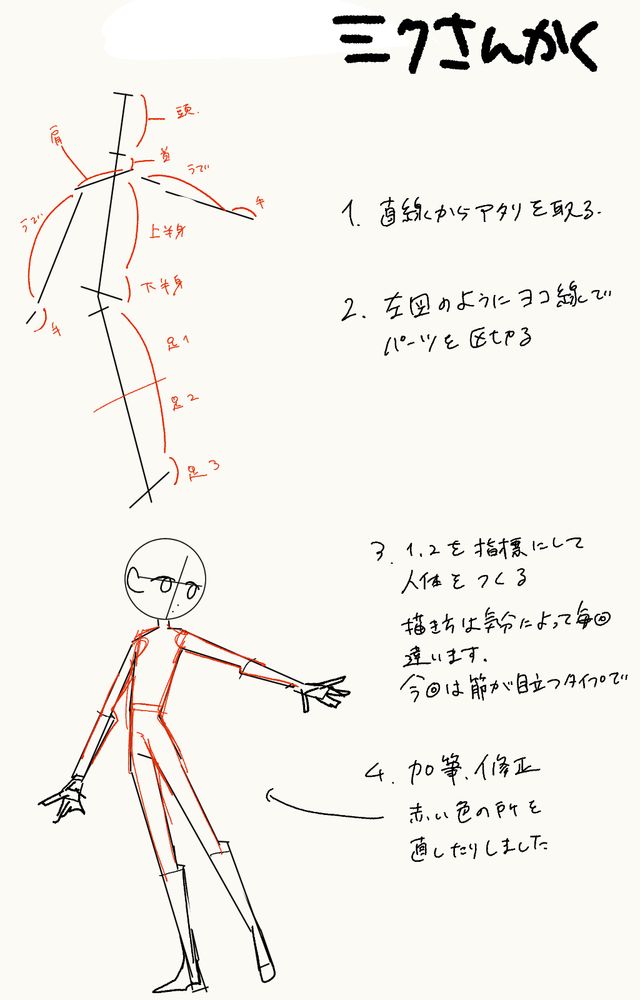 ミクさんかく
頭
肩
首
うで
手
うで
上半身
下半身
手
足1
足2
足3
1. 直線からアタリを取る.
2. 左図のようにヨコ線で
パーツを区切る
3. 1.2を指標にして
人体をつくる
描き方は気分によって毎回
違います.
今回は節が目立つタイプで
4. 加筆、修正
赤い色の所を
直したりしました